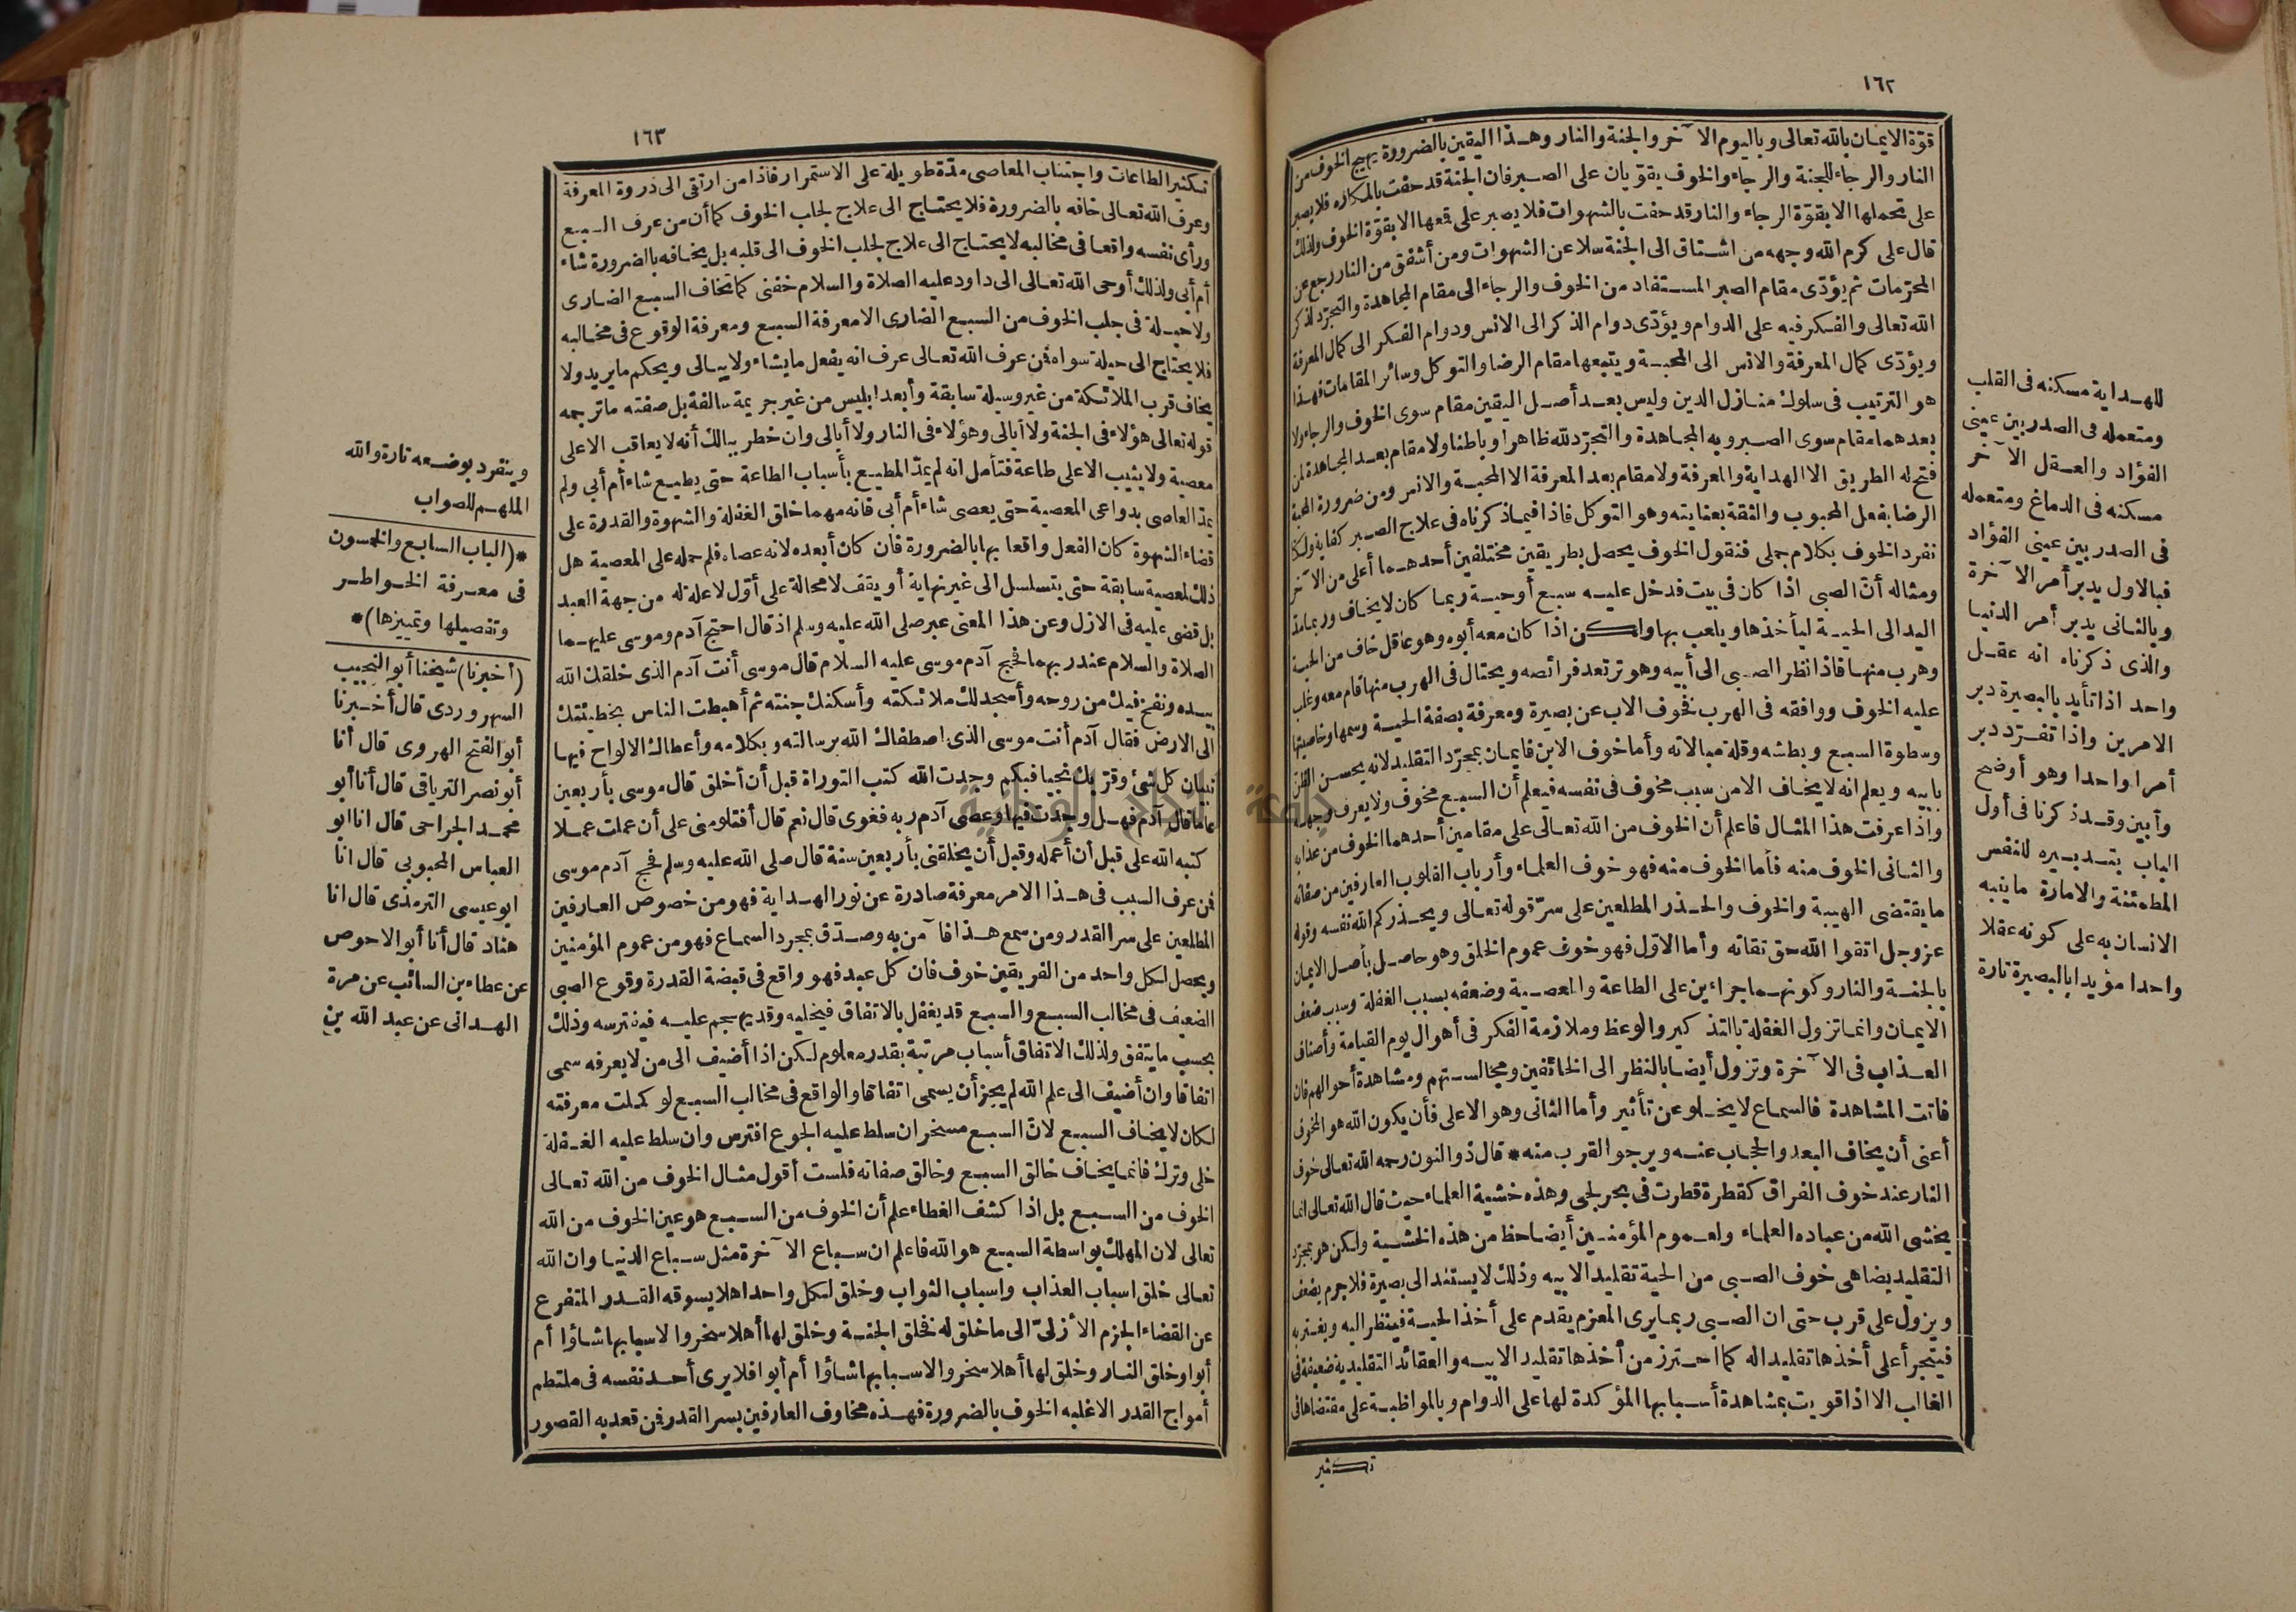 ١٦٢
قوّة الايمان بالله تعالى وباليوم الآخر والجنة والنار وهذا اليقين بالضرورة يهيج الخوف من
النار والرجاء للجنة والرجاء والخوف يقوّيان على الصبر فان الجنة قد حفت بالمكاره فلا يصبر
على تحملها الا بقوّة الرجاء والنار قد حفت بالشهوات فلا يصبر على قمعها الا بقوّة الخوف ولذلك
قال على كرم الله وجهه من اشتاق الى الجنة سلا عن الشهوات ومن أشفق من النار رجع عن
المحرّمات ثم يؤدّى مقام الصبر المستفاد من الخوف والرجاء الى مقام المجاهدة والتجرّد لذكر
الله تعالى والفكر فيه على الدوام ويؤدّى دوام الذكر الى الانس ودوام الفكر الى كمال المعرفة
ويؤدّى كمال المعرفة والانس الى المحبة ويتبعها مقام الرضا والتوكل وسائر المقامات فهذا
هو الترتيب فى سلوك منازل الدين وليس بعد أصل اليقين مقام سوى الخوف والرجاء ولا
بعدهما مقام سوى الصبر وبه المجاهدة والتجرّد لله ظاهرا وباطنا ولا مقام بعد المجاهدة لمن
فتح له الطريق الا الهداية والمعرفة ولا مقام بعد المعرفة الا المحبة والانس ومن ضرورة المحبة
الرضا بفعل المحبوب والثقة بعنايته وهو التوكل فاذا فيما ذكرناه فى علاج الصبر كفاية ولكنا
نفرد الخوف بكلام جملى فنقول الخوف يحصل بطريقين مختلفين أحدهما أعلى من الآخر
ومثاله أن الصبى اذا كان فى بيت فدخل عليه سبع أو حية ربما كان لا يخاف وربما مدّ
اليد الى الحية ليأخذها ويلعب بها ولكن اذا كان معه أبوه وهو عاقل خاف من الحية
وهرب منها فاذا نظر الصبى الى أبيه وهو ترتعد فرائصه ويحتال فى الهرب منها قام معه وغلب
عليه الخوف ووافقه فى الهرب فخوف الاب عن بصيرة ومعرفة بصفة الحية وسمها وخاصيتها
وسطوة السبع وبطشه وقلة مبالاته وأما خوف الابن فايمان بمجرّد التقليد لانه يحسن الظن
بابيه ويعلم انه لا يخاف الا من سبب مخوف فى نفسه فيعلم أن السبع مخوف ولا يعرف وجهه
واذا عرفت هذا المثال فاعلم أن الخوف من الله تعالى على مقامين أحدهما الخوف من عذابه
والثانى الخوف منه فأما الخوف منه فهو خوف العلماء وأرباب القلوب العارفين من صفاته
ما يقتضى الهيبة والخوف والحذر المطلعين على سرّ قوله تعالى ويحذركم الله نفسه وقوله
عز وجل اتقوا الله حق تقاته وأما الاوّل فهو خوف عموم الخلق وهو حاصل بأصل الايمان
بالجنة والنار وكونهما جزاءين على الطاعة والمعصية وضعفه بسبب الغفلة وسبب ضعف
الايمان وانما تزول الغفلة بالتذكير والوعظ وملازمة الفكر فى أهوال يوم القيامة وأصناف
العذاب فى الآخرة وتزول أيضا بالنظر الى الخائفين ومجالستهم ومشاهدة أحوالهم فان
فاتت المشاهدة فالسماع لا يخلو عن تأثير وأما الثانى وهو الاعلى فأن يكون الله هو المخوف
أعنى أن يخاف البعد والحجاب عنه ويرجو القرب منه * قال ذو النون رحمه الله تعالى خوف
النار عند خوف الفراق كقطرة قطرت فى بحر لجى وهذه خشية العلماء حيث قال الله تعالى انما
يخشى الله من عباده العلماء ولعموم المؤمنين أيضا حظ من هذه الخشية ولكن هو بمجرّد
التقليد يضاهى خوف الصبى من الحية تقليدا لابيه وذلك لا يستند الى بصيرة فلا جرم يضعف
ويزول على قرب حتى ان الصبى ربما يرى المعزم يقدم على أخذ الحية فينظر اليه ويغتر به
فيتجرأ على أخذها تقليدا له كما احترز من أخذها تقليد الابيه والعقائد التقليدية ضعيفة فى
الغالب الا اذا قويت بمشاهدة أسبابها المؤكدة لها على الدوام وبالمواظبة على مقتضاها فى
تكثير
للهداية مسكنه فى القلب
ومتعمله فى الصدر بين عينى
الفؤاد والعقل الآخر
مسكنه فى الدماغ ومتعمله
فى الصدر بين عينى الفؤاد
فبالاول يدبر أمر الآخرة
وبالثانى يدبر أمر الدنيا
والذى ذكرناه انه عقل
واحد اذا تأيد بالبصيرة دبر
الامرين واذا تفرّد دبر
أمرا واحدا وهو أوضح
وأبين وقد ذكرنا فى أول
الباب بتدبيره للنفس
المطمئنة والامارة ما ينبه
الانسان به على كونه عقلا
واحدا مؤيدا بالبصيرة تارة
١٦٣
تكثير الطاعات واجتناب المعاصى مدّة طويلة على الاستمرار فاذا من ارتقى الى ذروة المعرفة
وعرف الله تعالى خافه بالضرورة فلا يحتاج الى علاج لجلب الخوف كما أن من عرف السبع
ورأى نفسه واقعا فى مخالبه لا يحتاج الى علاج لجلب الخوف الى قلبه بل يخافه بالضرورة شاء
أم أبى ولذلك أوحى الله تعالى الى داود عليه الصلاة والسلام خفنى كما تخاف السبع الضارى
ولا حيلة فى جلب الخوف من السبع الضارى الا معرفة السبع ومعرفة الوقوع فى مخالبه
فلا يحتاج الى حيلة سواه فمن عرف الله تعالى عرف انه يفعل ما يشاء ولا يبالى ويحكم ما يريد ولا
يخاف قرب الملائكة من غير وسيلة سابقة وأبعد ابليس من غير جريمة سالفة بل صفته ما ترجمه
قوله تعالى هؤلاء فى الجنة ولا أبالى وهؤلاء فى النار ولا أبالى وان خطر ببالك أنه لا يعاقب الا على
معصية ولا يثيب الا على طاعة فتأمل انه لم يمدّ المطيع بأسباب الطاعة حتى يطيع شاء أم أبى ولم
يمدّ العاصى بدواعى المعصية حتى يعصى شاء أم أبى فانه مهما خلق الغفلة والشهوة والقدرة على
قضاء الشهوة كان الفعل واقعا بها بالضرورة فان كان أبعده لانه عصاه فلم حمله على المعصية هل
ذلك لمعصية سابقة حتى يتسلسل الى غير نهاية أو يقف لا محالة على أوّل لا علة له من جهة العبد
بل قضى عليه فى الازل وعن هذا المعنى عبر صلى الله عليه وسلم اذ قال احتج آدم وموسى عليهما
الصلاة والسلام عند ربهما فحج آدم موسى عليه السلام قال موسى أنت آدم الذى خلقك الله
بيده ونفخ فيك من روحه وأسجد لك ملائكته وأسكنك جنته ثم أهبطت الناس بخطيئتك
الى الارض فقال آدم أنت موسى الذى اصطفاك الله برسالته وبكلامه وأعطاك الالواح فيها
تبيان كل شئ وقرّبك نجيا فبكم وجدت الله كتب التوراة قبل أن أخلق قال موسى بأربعين
عاما قال آدم فهل وجدت فيها وعصى آدم ربه فغوى قال نعم قال أفتلومنى على أن عملت عملا
كتبه الله على قبل أن أعمله وقبل أن يخلقنى بأربعين سنة قال صلى الله عليه وسلم فحج آدم موسى
فمن عرف السبب فى هذا الامر معرفة صادرة عن نور الهداية فهو من خصوص العارفين
المطلعين على سر القدر ومن سمع هذا فآمن به وصدّق بمجرد السماع فهو من عموم المؤمنين
ويحصل لكل واحد من الفريقين خوف فان كل عبد فهو واقع فى قبضة القدرة وقوع الصبى
الضعيف فى مخالب السبع والسبع قد يغفل بالاتفاق فيخليه وقد يهجم عليه فيفترسه وذلك
بحسب ما يتفق ولذلك الاتفاق أسباب مرتبة بقدر معلوم لكن اذا أضيف الى من لا يعرفه سمى
اتفاقا وان أضيف الى علم الله لم يجز أن يسمى اتفاقا والواقع فى مخالب السبع لو كملت معرفته
لكان لا يخاف السبع لانّ السبع مسخر ان سلط عليه الجوع افترس وان سلط عليه الغفلة
خلى وترك فانما يخاف خالق السبع وخالق صفاته فلست أقول مثال الخوف من الله تعالى
الخوف من السبع بل اذا كشف الغطاء علم أن الخوف من السبع هو عين الخوف من الله
تعالى لان المهلك بواسطة السبع هو الله فاعلم ان سباع الآخرة مثل سباع الدنيا وان الله
تعالى خلق اسباب العذاب واسباب الثواب وخلق لكل واحد اهلا يسوقه القدر المتفرع
عن القضاء الجزم الأزلىّ الى ما خلق له فخلق الجنة وخلق لها أهلا سخروا لاسبابها شاؤا أم
أبوا وخلق النار وخلق لها أهلا سخروا لاسبابها شاؤا أم أبوا فلا يرى أحد نفسه فى ملتطم
أمواج القدر الا غلبه الخوف بالضرورة فهذه مخاوف العارفين بسر القدر فمن قعد به القصور
وينفرد بوضعه تارة والله
الملهم للصواب
*(الباب السابع والخمسون
فى معرفة الخواطر
وتفصيلها وتمييزها)*
(أخبرنا) شيخنا أبو النجيب
السهروردى قال أخبرنا
أبو الفتح الهروى قال أنا
أبو نصر الترياقى قال أنا أبو
محمد الجراحى قال انا ابو
العباس المحبوبى قال انا
ابو عيسى الترمذى قال انا
هناد قال أنا أبو الاحوص
عن عطاء بن السائب عن مرة
الهمدانى عن عبد الله بن